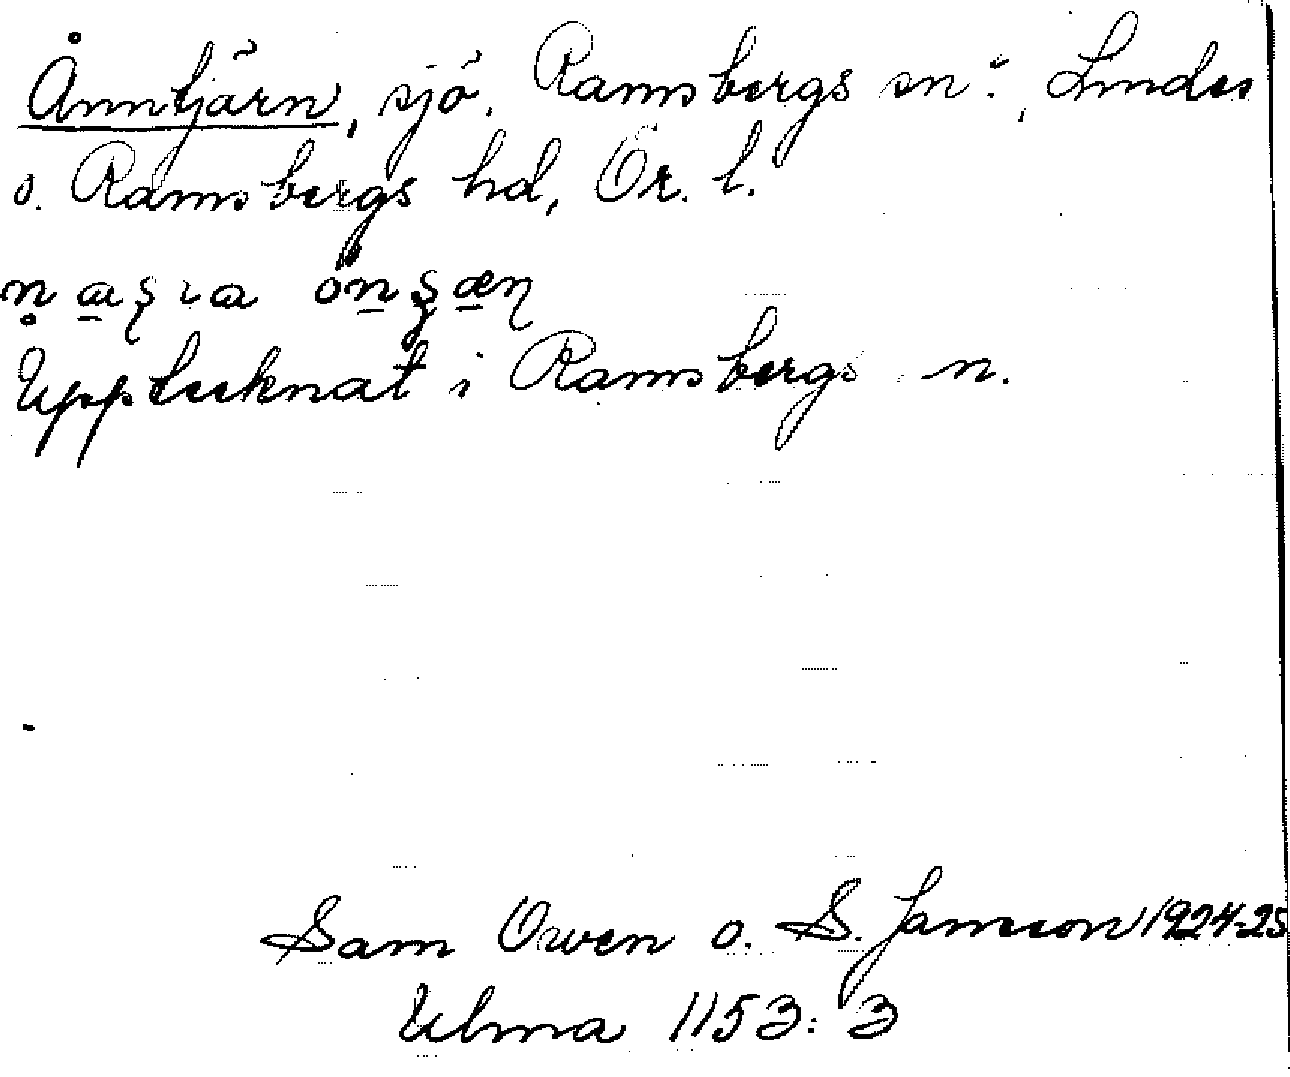 Ånntjärn, sjö, Ramsbergs sn., Lindes
o. Ramsbergs hd, Ör. l.
Upptecknat i Ramsbergs n.
Sam Owen o. S. Jansson 1924-25
Ulma 1153:3